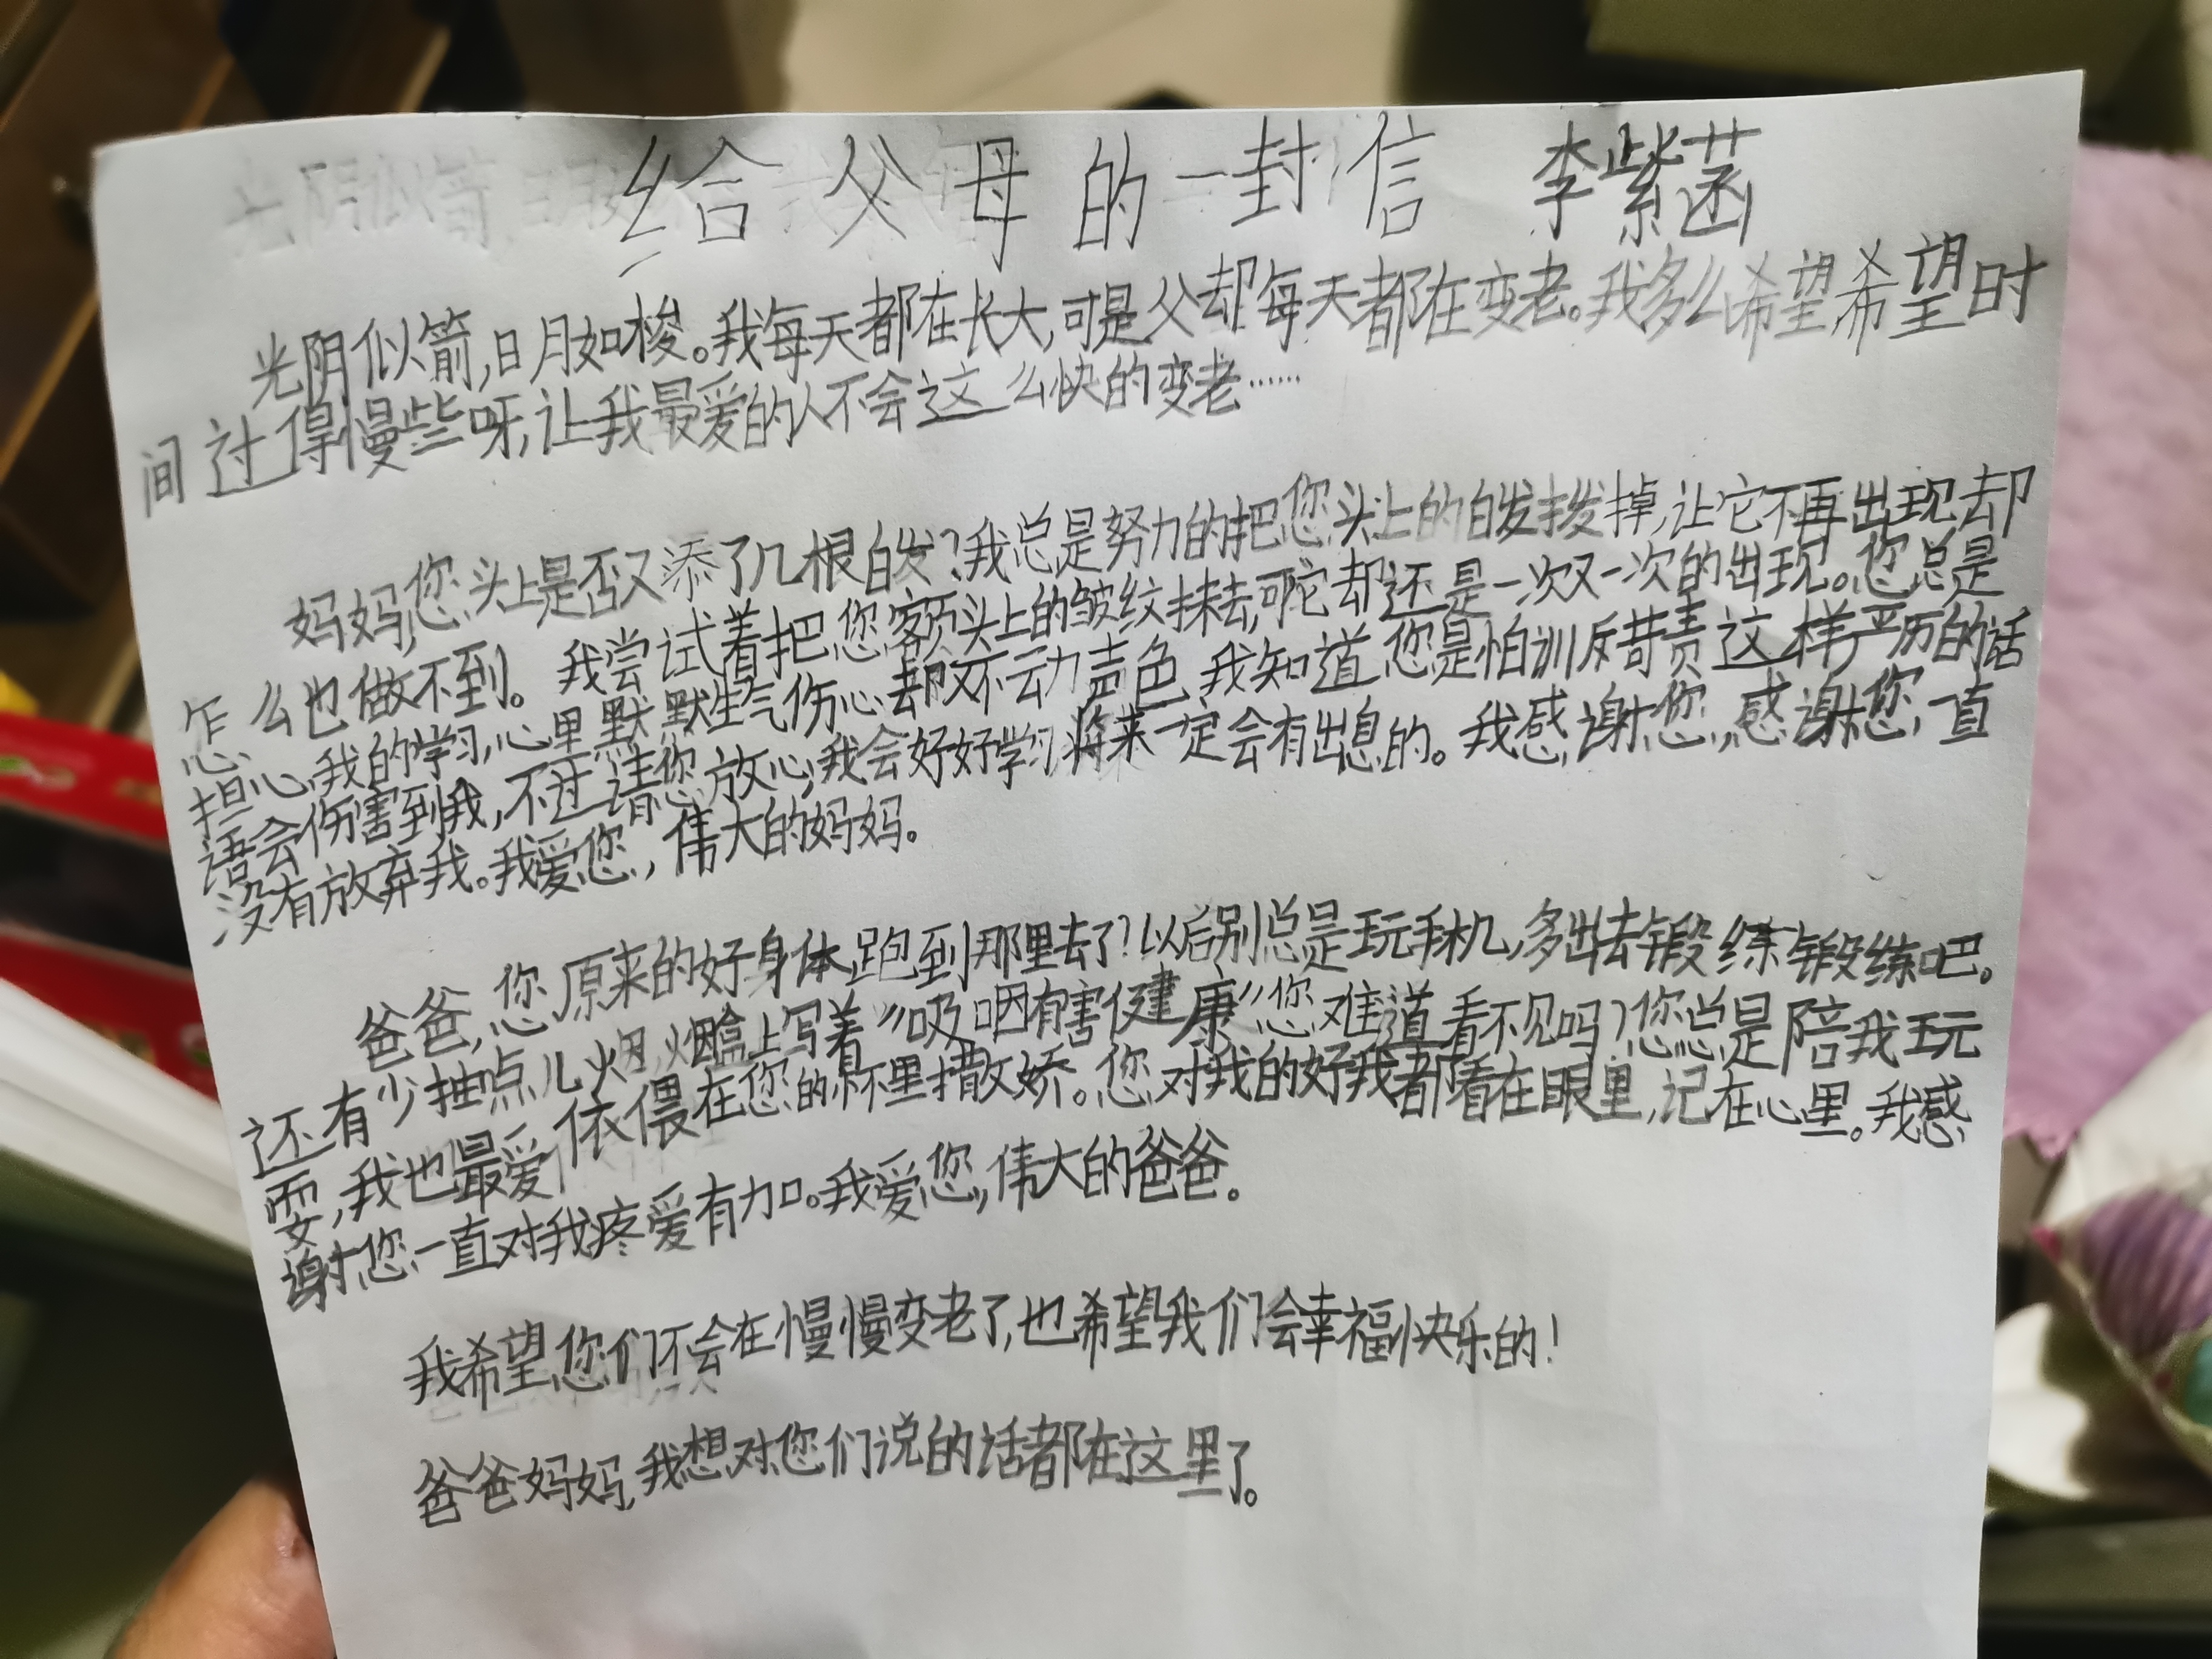 给父母的一封信 李紫菡
光阴似箭,日月如梭。我每天都在长大,可是父却每天都在变老。我多么希望希望时
间过得慢些呀,让我最爱的人不会这么快的变老……
妈妈,您头上是否又添了几根白发?我总是努力的把您头上的白发拔掉,让它不再出现却
怎么也做不到。我尝试着把您额头上的皱纹抹去,可它却还是一次又一次的出现。您总是
担心我的学习,心里默默生气伤心却又不动声色,我知道您是怕训斥苛责这样严历的话
语会伤害到我,不过请您放心,我会好好学习将来一定会有出息的。我感谢您,感谢您一直
没有放弃我。我爱您,伟大的妈妈。
爸爸,您原来的好身体跑到那里去了?以后别总是玩手机,多出去锻练锻练吧。
还有少抽点儿烟,烟盒上写着“吸咽有害健康”您难道看不见吗?您总是陪我玩
耍,我也最爱依偎在您的怀里撒娇。您对我的好我都看在眼里,记在心里。我感
谢您一直对我疼爱有加。我爱您,伟大的爸爸。
我希望您们不会在慢慢变老了,也希望我们会幸福快乐的!
爸爸妈妈,我想对您们说的话都在这里了。